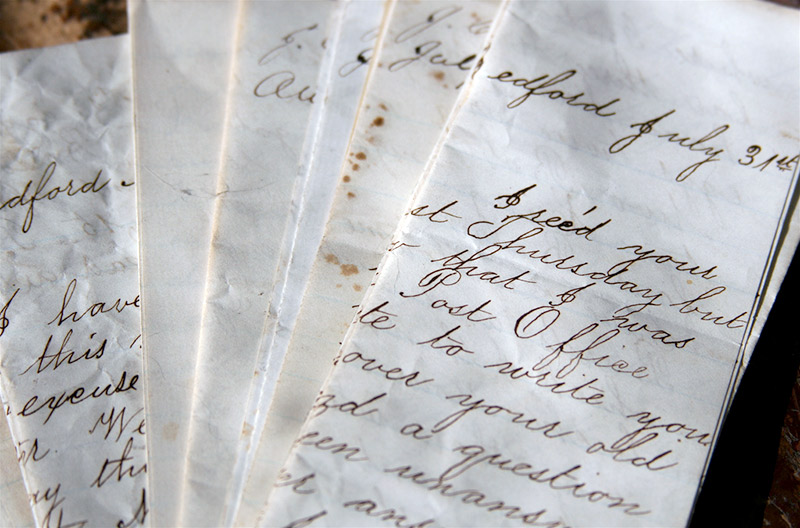 dford
I have
this
excuse
We
Au
J.
Jul
edford July 31st
I rec'd your
st Thursday but
that I was
Post Office
te to write you
over your old
nd a question
een unans
er ans